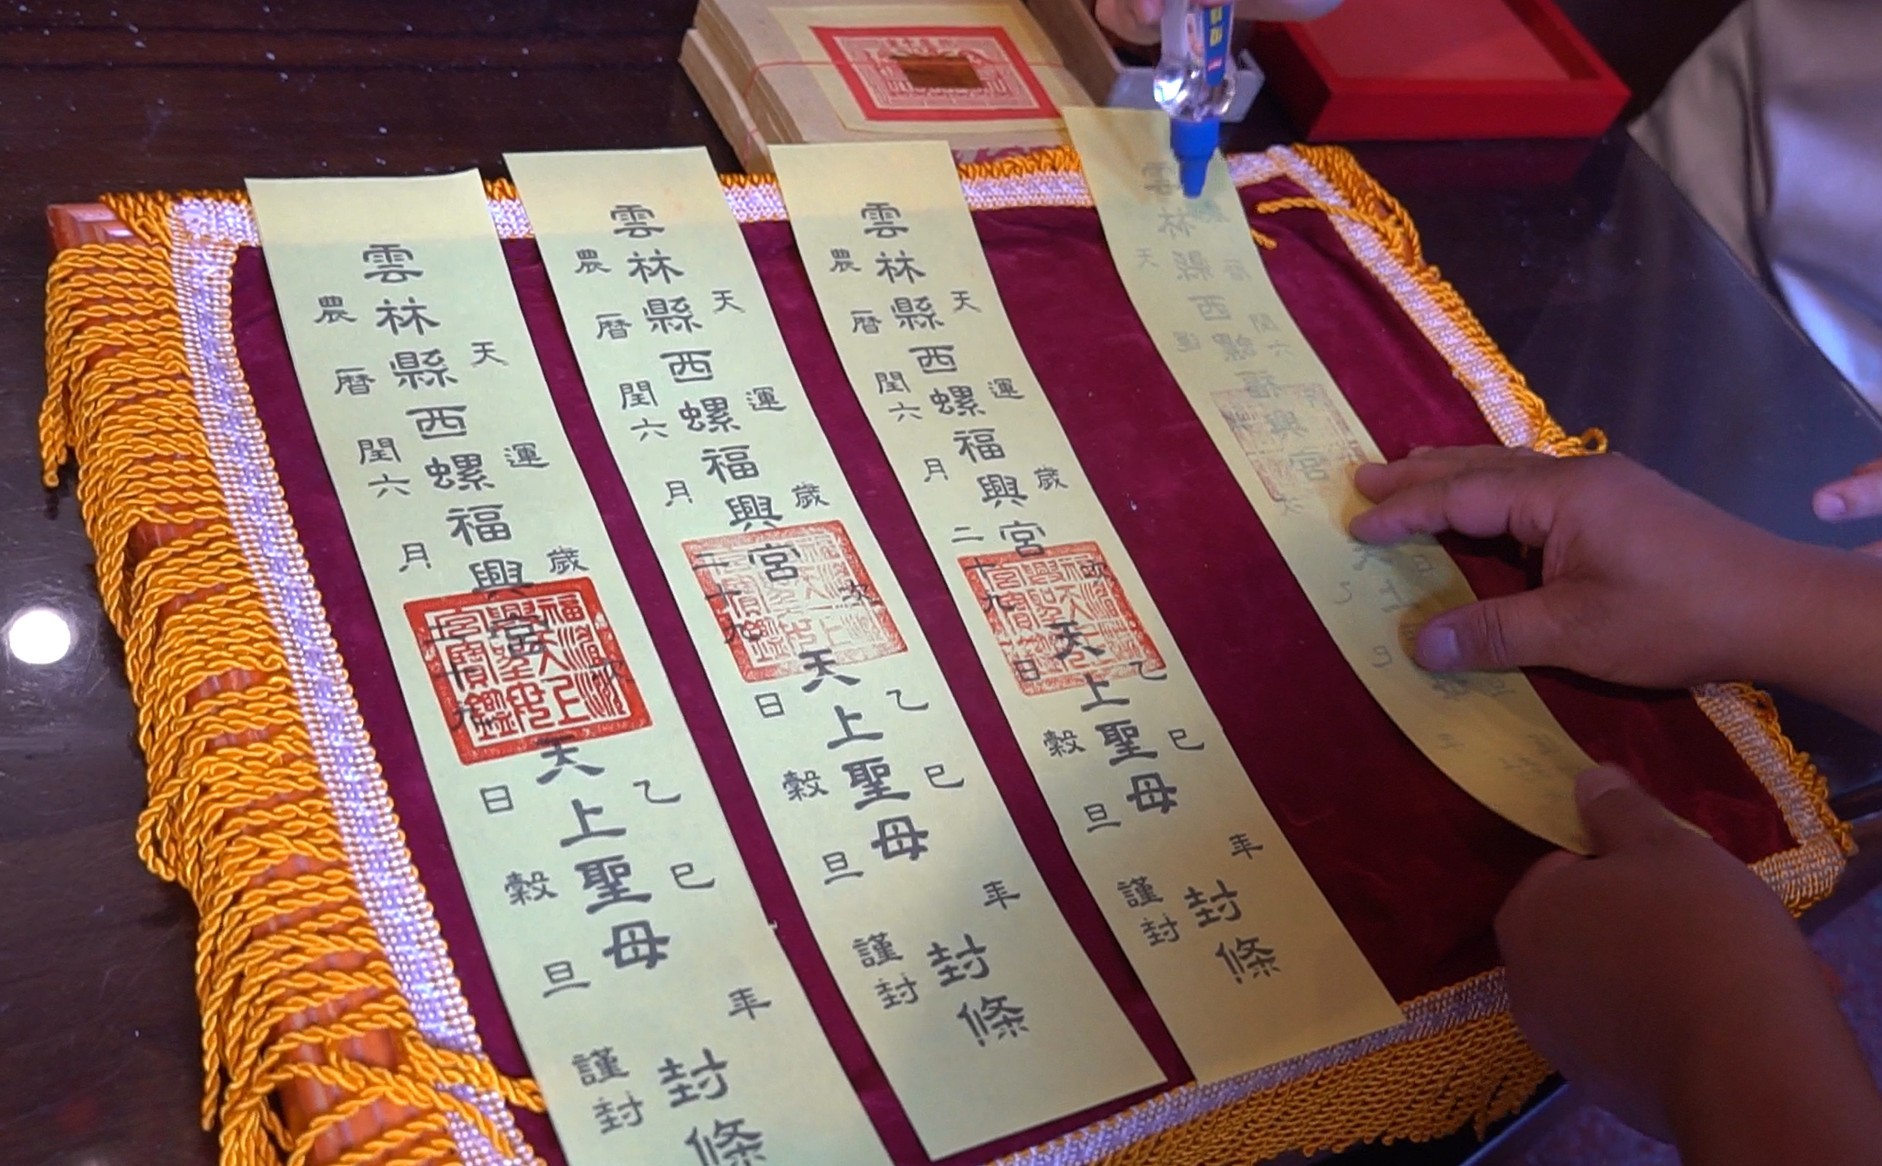 天運歲次乙巳年
雲林縣西螺福興宮天上聖母封條
農曆閏六月二十九日穀旦謹封
天運歲次乙巳年
雲林縣西螺福興宮天上聖母封條
農曆閏六月二十九日穀旦謹封
天運歲次乙巳年
雲林縣西螺福興宮天上聖母封條
農曆閏六月二十九日穀旦謹封
雲林縣西螺福興宮